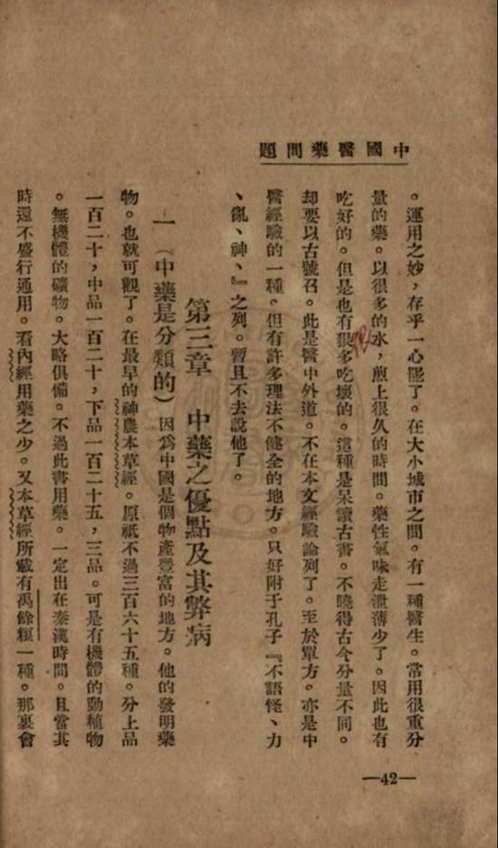 中國醫藥問題
。運用之妙，存乎一心罷了。在大小城市之間。有一種醫生。常用很重分
量的藥。以很多的水，煎上很久的時間。藥性氣味走洩薄少了。因此也有
吃好的。但是也有很多吃壞的。這種是呆讀古書。不曉得古今分量不同。
却要以古號召。此是醫中外道。不在本文經驗論列了。至於單方。亦是中
醫經驗的一種。但有許多理法不健全的地方。只好附于孔子『不語怪、力
、亂、神、』之列。暫且不去說他了。
第三章　中藥之優點及其弊病
一（中藥是分類的）因爲中國是個物產豐富的地方。他的發明藥
物。也就可觀了。在最早的神農本草經。原祇不過三百六十五種。分上品
一百二十，中品一百二十，下品一百二十五，三品。可是有機體的動植物
。無機體的礦物。大略俱備。不過此書用藥。一定出在秦漢時間。且當其
時還不盛行通用。看內經用藥之少。又本草經所載有禹餘糧一種。那裏會
—42—